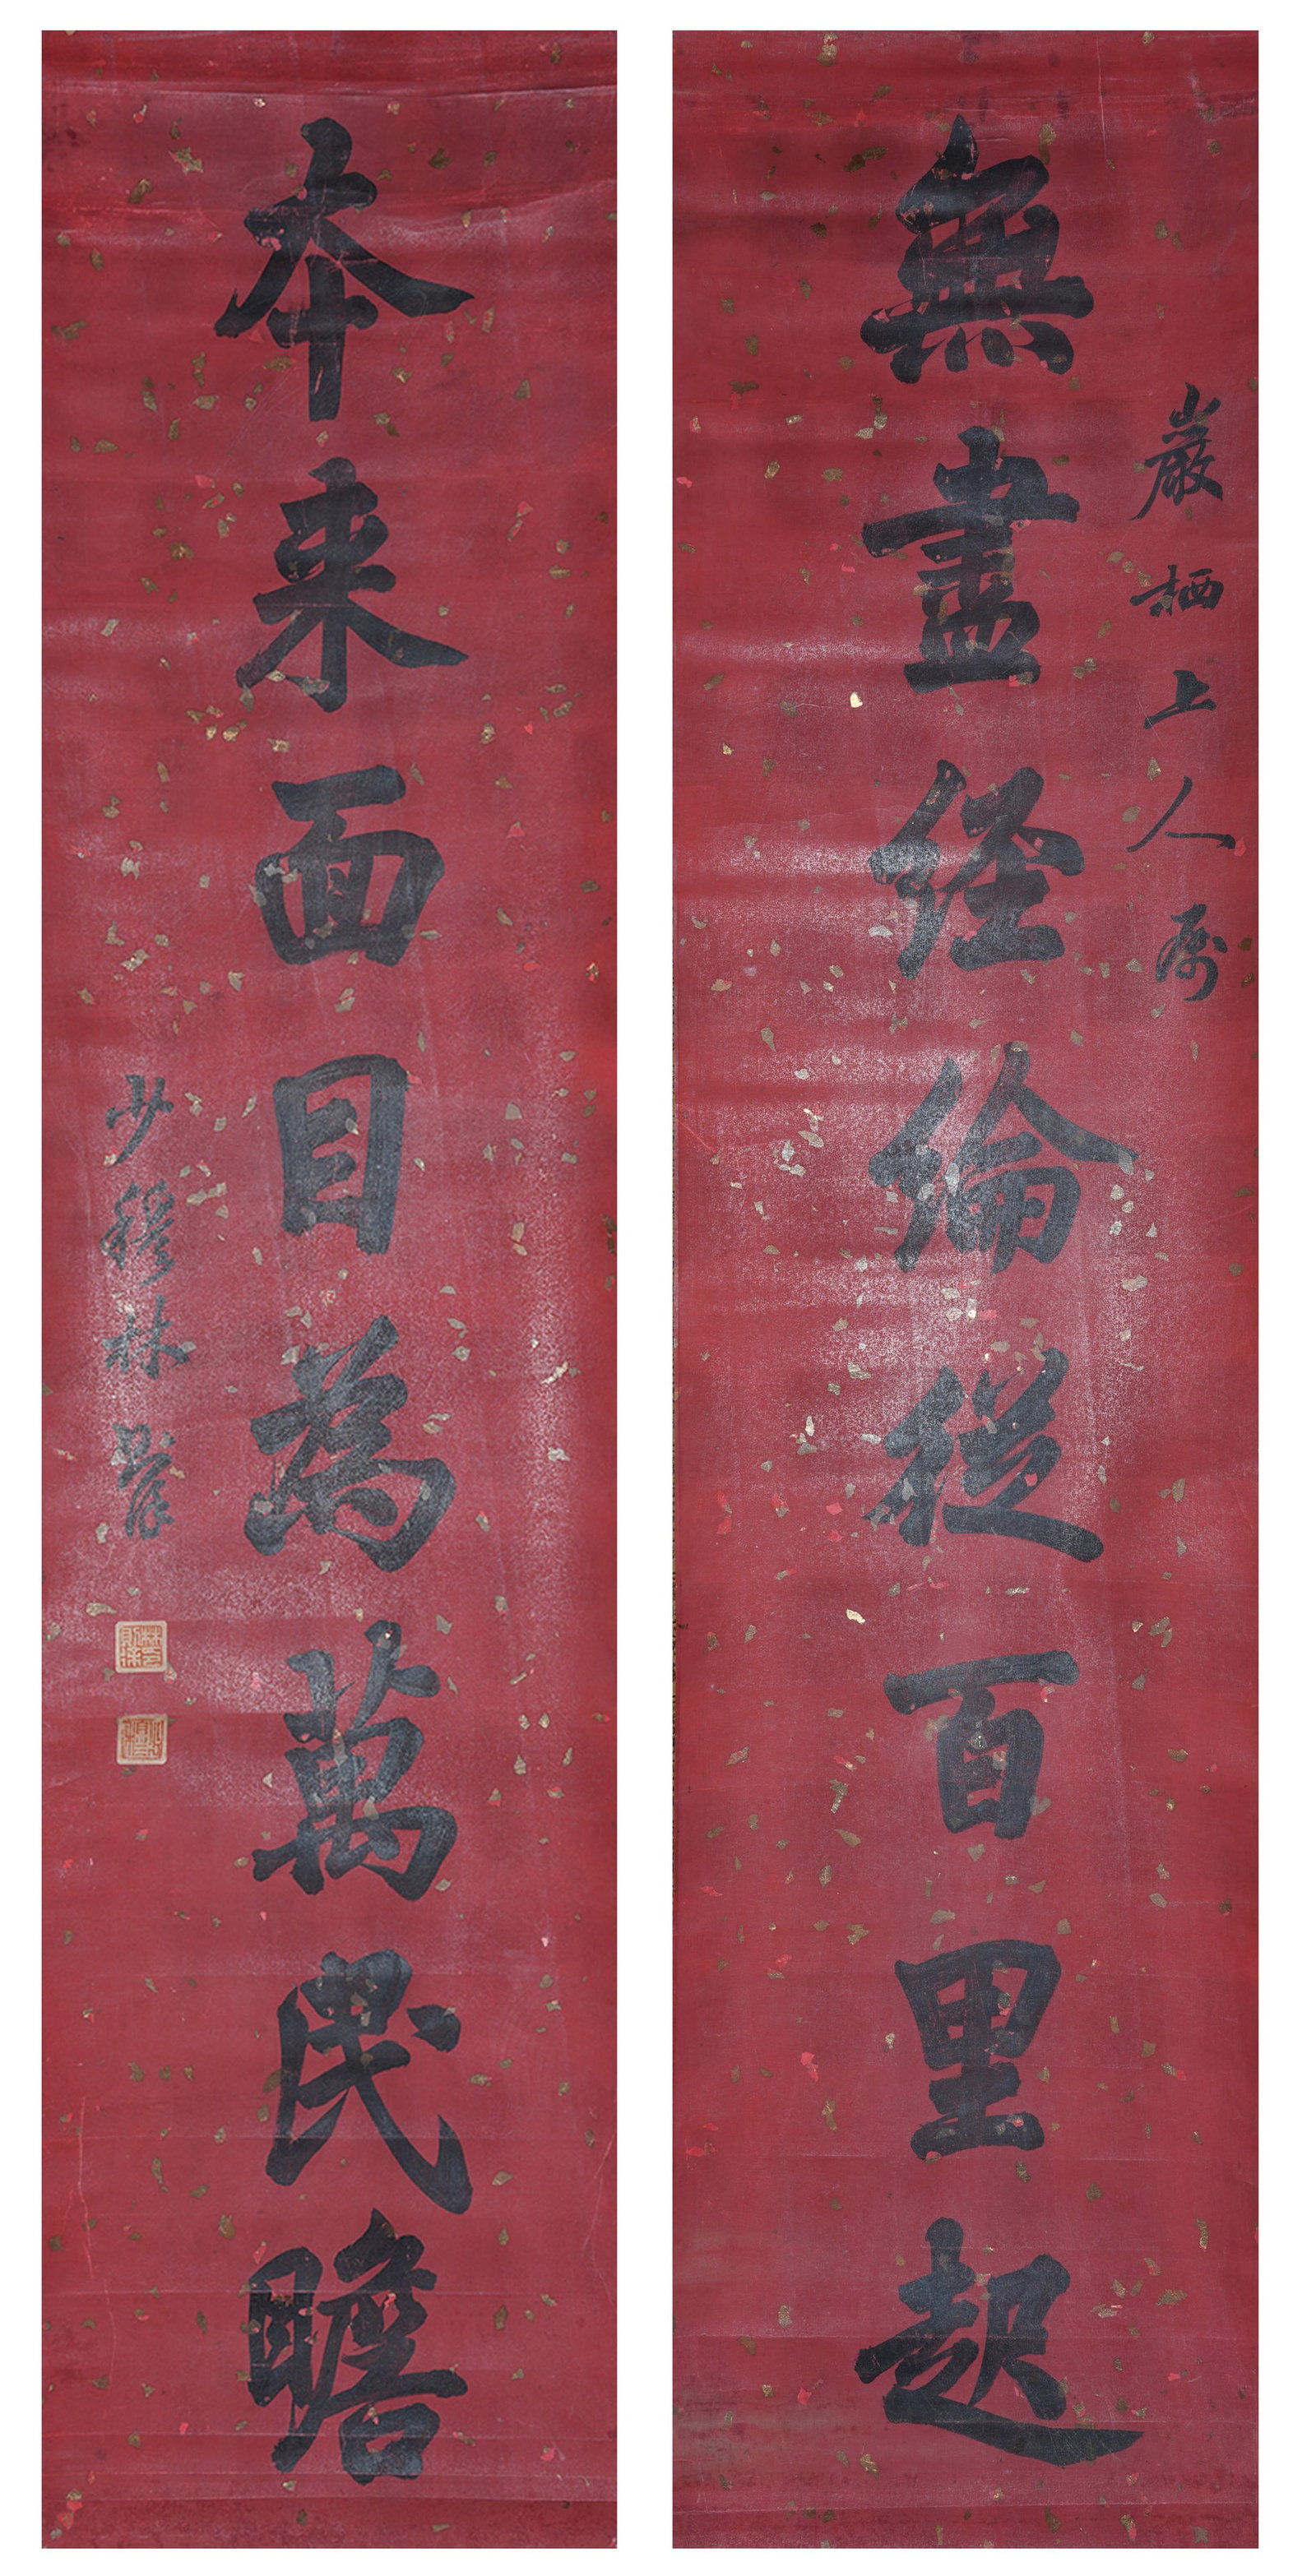 巖栖上人属
無盡經綸從百里起
本来面目為萬民瞻
少穆林則徐